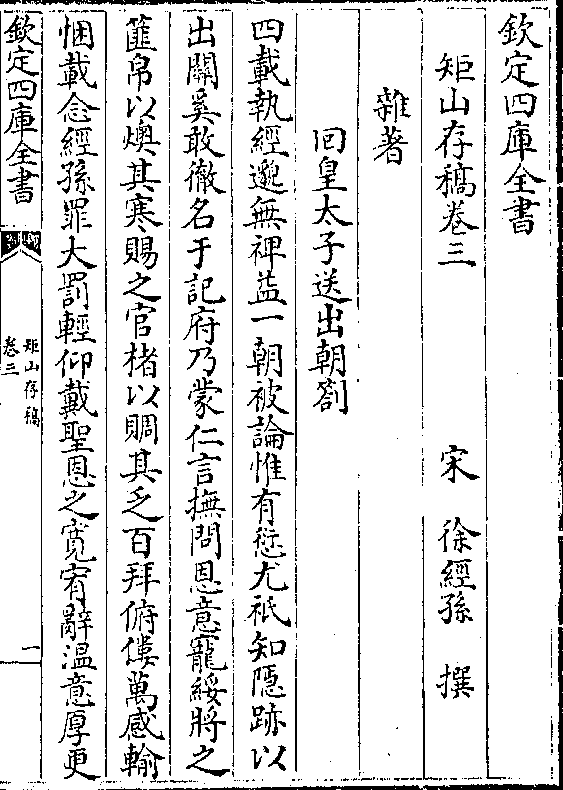 欽定四庫全書
矩山存稿卷三
宋　徐經孫　撰
雜著
回皇太子送出朝劄
四載執經邈無裨益一朝被論惟有愆尤祇知隱跡以
出關奚敢徹名于記府乃蒙仁言撫問恩意寵綏將之
篚帛以燠其寒賜之官楮以賙其乏百拜俯僂萬感輸
悃載念經孫罪大罰輕仰戴聖恩之寛宥辭温意厚更
欽定四庫全書
矩山存稿
卷三
一